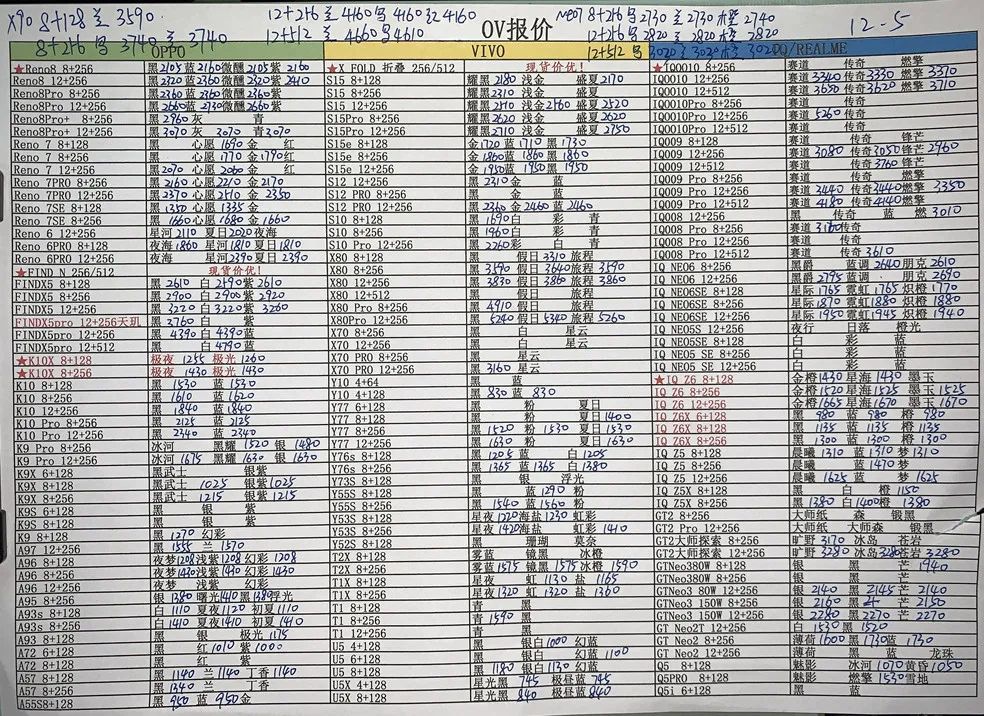 X90 8+128 兰 3590
12+256 兰 4160 写 4160 红 4160
neo7 8+256 写 2730 兰 2730 橙 2740
12-5
8+256 写 3740 兰 3740
12+512 兰 4660 写 4610
OV报价
12+256 写 2820 兰 2820 橙 2820
12+512 写 3020 兰 3020 橙 3020
OPPO
★Reno8 8+256 黑 2105 蓝 2160 微醺 2105 紫 2160
Reno8 12+256 黑 2320 蓝 2360 微醺 2320 紫 2410
Reno8Pro 8+256 黑 2360 蓝 2360 微醺 2360 紫
Reno8Pro 12+256 黑 2660 蓝 2730 微醺 2660 紫
Reno8Pro+ 8+256 黑 2960 灰 青
Reno8Pro+ 12+256 黑 3070 灰 3070 青 3070
Reno 7 8+128 黑 心愿 1690 金 红
Reno 7 8+256 黑 心愿 1770 金 1790 红
Reno 7 12+256 黑 2070 心愿 2060 金 红
Reno 7PRO 8+256 黑 2160 心愿 2210 金 2170
Reno 7PRO 12+256 黑 2370 心愿 2410 金 2350
Reno 7SE 8+128 黑 1350 心愿 1335 金
Reno 7SE 8+256 黑 1660 心愿 1680 金 1660
Reno 6 12+256 星河 2110 夏日 2020 夜海
Reno 6PRO 8+128 夜海 1860 星河 1810 夏日 1810
Reno 6PRO 12+256 夜海 星河 2390 夏日 2390
★FIND N 256/512 现货价优!
FINDX5 8+128 黑 2610 白 2590 紫 2610
FINDX5 8+256 黑 2900 白 2905 紫 2920
FINDX5 12+256 黑 3220 白 3220 紫 3260
FINDX5pro 12+256天玑 黑 2760 白 紫
FINDX5pro 12+256 黑 4390 白 4390 蓝
FINDX5pro 12+512 黑 白 4790 蓝
★K10X 8+128 极夜 1255 极光 1260
★K10X 8+256 极夜 1430 极光 1430
K10 8+128 黑 1530 蓝 1530
K10 8+256 黑 1610 蓝 1620
K10 12+256 黑 1840 蓝 1840
K10 Pro 8+256 黑 2125 蓝 2125
K10 Pro 12+256 黑 2340 蓝 2340
K9 Pro 8+256 冰河 黑耀 1520 银 1480
K9 Pro 12+256 冰河 1675 黑耀 1630 银 1630
K9X 6+128 黑武士 银紫
K9X 8+128 黑武士 1025 银紫 1025
K9X 8+256 黑武士 1215 银紫 1215
K9S 6+128 黑 银 紫
K9S 8+128 黑 银 紫
K9 8+128 黑 1270 幻彩
A97 12+256 黑 1555 兰 1570
A96 8+128 夜梦 1208 浅紫 1208 幻彩 1208
A96 8+256 夜梦 1430 浅紫 1430 幻彩 1430
A96 12+256 夜梦 浅紫 幻彩
A95 8+256 银 1380 曙光 1410 黑 1389 浮光
A93s 8+128 白 1110 夏夜 1120 初夏 1110
A93s 8+256 白 1410 夏夜 1410 初夏 1410
A93 8+128 黑 银 极光 1175
A72 8+128 黑 红 1010 紫 1000
A72 6+128 黑 红 紫
A57 8+128 黑 1140 兰 1140 丁香 1140
A57 8+256 黑 1340 兰 丁香
A55S8+128 黑 950 蓝 950 金
VIVO
★X FOLD 折叠 256/512 现货价优!
S15 8+128 耀黑 2180 浅金 盛夏 2170
S15 8+256 耀黑 2310 浅金 盛夏
S15 12+256 耀黑 2510 浅金 2560 盛夏 2520
S15Pro 8+256 耀黑 2620 浅金 盛夏 2620
S15Pro 12+256 耀黑 2710 浅金 盛夏 2750
S15e 8+128 金 1720 蓝 1710 黑 1730
S15e 8+256 金 1860 蓝 1860 黑 1860
S15e 12+256 金 1950 蓝 1950 黑 1950
S12 12+256 黑 2310 金 蓝
S12 PRO 8+256 黑 金 蓝
S12 PRO 12+256 黑 2360 金 2460 蓝 2460
S10 8+128 黑 1690 白 彩 青
S10 8+256 黑 1960 白 彩 青
S10 Pro 12+256 黑 2260 彩 白 青
X80 8+128 黑 假日 3310 旅程
X80 8+256 黑 3590 假日 3640 旅程 3590
X80 12+256 黑 3830 假日 3860 旅程 3860
X80 12+512 黑 假日 旅程
X80Pro 8+256 黑 4910 假日 旅程
X80Pro 12+256 黑 5240 假日 5340 旅程 5260
X70 8+256 黑 白 星云
X70 12+256 黑 白 星云
X70 PRO 8+256 黑 星云
X70 PRO 12+256 黑 3160 星云
Y10 4+64 黑 蓝
Y10 4+128 黑 830 蓝 830
Y77 6+128 黑 粉 夏日
Y77 8+128 黑 粉 夏日 1400
Y77 8+256 黑 1520 粉 1530 夏日 1530
Y77 12+256 黑 1630 粉 夏日 1630
Y76s 8+128 黑 1205 蓝 白 1205
Y76s 8+256 黑 1365 蓝 1365 白 1380
Y73S 8+128 黑 银 浮光
Y55S 8+128 黑 蓝 1290 粉
Y55S 8+256 黑 1540 蓝 1560 粉
Y53S 8+128 星夜 1220 海盐 1230 虹彩
Y53S 8+256 星夜 1420 海盐 虹彩 1410
Y52S 8+128 黑 珊瑚 莫奈
T2X 8+128 雾蓝 镜黑 冰橙
T2X 8+256 雾蓝 1575 镜黑 1575 冰橙 1590
T1X 8+128 星夜 虹 1130 盐 1165
T1X 8+256 星夜 1320 虹 1320 盐 1360
T1 8+128 青 黑
T1 8+256 青 1590 黑
T1 12+256 青 黑
U5 4+128 黑 银白 1000 幻蓝
U5 6+128 黑 银白 幻蓝 1100
U5 8+128 黑 1180 银白 1130 幻蓝
U5X 4+128 星光黑 745 极昼蓝 745
U5X 8+128 星光黑 840 极昼蓝 840
IQ/REALME
★IQOO10 8+256 赛道 传奇 燃擎
IQOO10 12+256 赛道 3340 传奇 3330 燃擎 3370
IQOO10 12+512 赛道 3650 传奇 3620 燃擎 3710
IQOO10Pro 8+256 赛道 传奇
IQOO10Pro 12+256 赛道 5260 传奇
IQOO10Pro 12+512 赛道 传奇
IQOO9 8+128 赛道 传奇 锋芒
IQOO9 12+256 赛道 3080 传奇 3050 锋芒 2960
IQOO9 12+512 赛道 传奇 3760 锋芒
IQOO9 Pro 8+256 赛道 传奇 燃擎
IQOO9 Pro 12+256 赛道 3440 传奇 3440 燃擎 3350
IQOO9 Pro 12+512 赛道 4180 传奇 4140 燃擎
IQOO8 12+256 黑 传奇 蓝 燃 3010
IQOO8 Pro 8+256 赛道 3160 传奇
IQOO8 Pro 12+512 赛道 传奇 3610
IQ NEO6 8+256 黑爵 蓝调 2640 朋克 2610
IQ NEO6 12+256 黑 2795 蓝调 朋克 2690
IQ NEO6SE 8+128 星际 1765 霓虹 1765 炽橙 1770
IQ NEO6SE 8+256 星际 1870 霓虹 1880 炽橙 1880
IQ NEO6SE 12+256 星际 1950 霓虹 1945 炽橙 1940
IQ NEO5S 12+256 夜行 日落 橙光
IQ NEO5 12+256 白 彩 蓝
IQ NEO5 SE 8+256 白 彩 蓝
IQ NEO5 SE 12+256 白 彩 蓝
★IQ Z6 8+128 金橙 1430 星海 1430 墨玉
IQ Z6 8+256 金橙 1520 星海 1525 墨玉 1525
IQ Z6 12+256 金橙 1665 星海 1670 墨玉 1670
IQ Z6X 6+128 黑 980 蓝 980 橙 980
IQ Z6X 8+128 黑 1135 蓝 1135 橙 1135
IQ Z6X 8+256 黑 1300 蓝 1300 橙 1300
IQ Z5 8+128 晨曦 1310 蓝 1310 梦 1310
IQ Z5 8+256 晨曦 蓝 1470 梦
IQ Z5 12+256 晨曦 1625 蓝 梦 1625
IQ Z5X 8+128 黑 白 橙 1150
IQ Z5X 8+256 黑 1380 白 1400 橙 1380
GT2 8+256 大师纸 森 锻黑
GT2 Pro 12+256 大师纸 大师森 锻黑
GT2大师探索 8+256 旷野 3170 冰岛 苍岩
GT2大师探索 12+256 旷野 3280 冰岛 3280 苍岩 3280
GTNeo380W 8+128 黑 芒 1940
GTNeo380W 8+256 银 黑 芒
GTNeo3 80W 12+256 银 2140 黑 2145 芒 2140
GTNeo3 150W 8+256 银 2160 黑 芒 2150
GTNeo3 150W 12+256 银 2280 黑 2270 芒 2270
GT Neo2T 12+256 白 1530 黑 1520
GT Neo2 8+128 薄荷 1600 黑 1730 蓝 1730
GT Neo2 12+256 薄荷 黑 蓝 龙珠
Q5 8+128 魅影 冰河 1070 黄昏 1050
Q5PRO 8+128 魅影 燃擎 1530 雪地
Q5i 6+128 黑 蓝